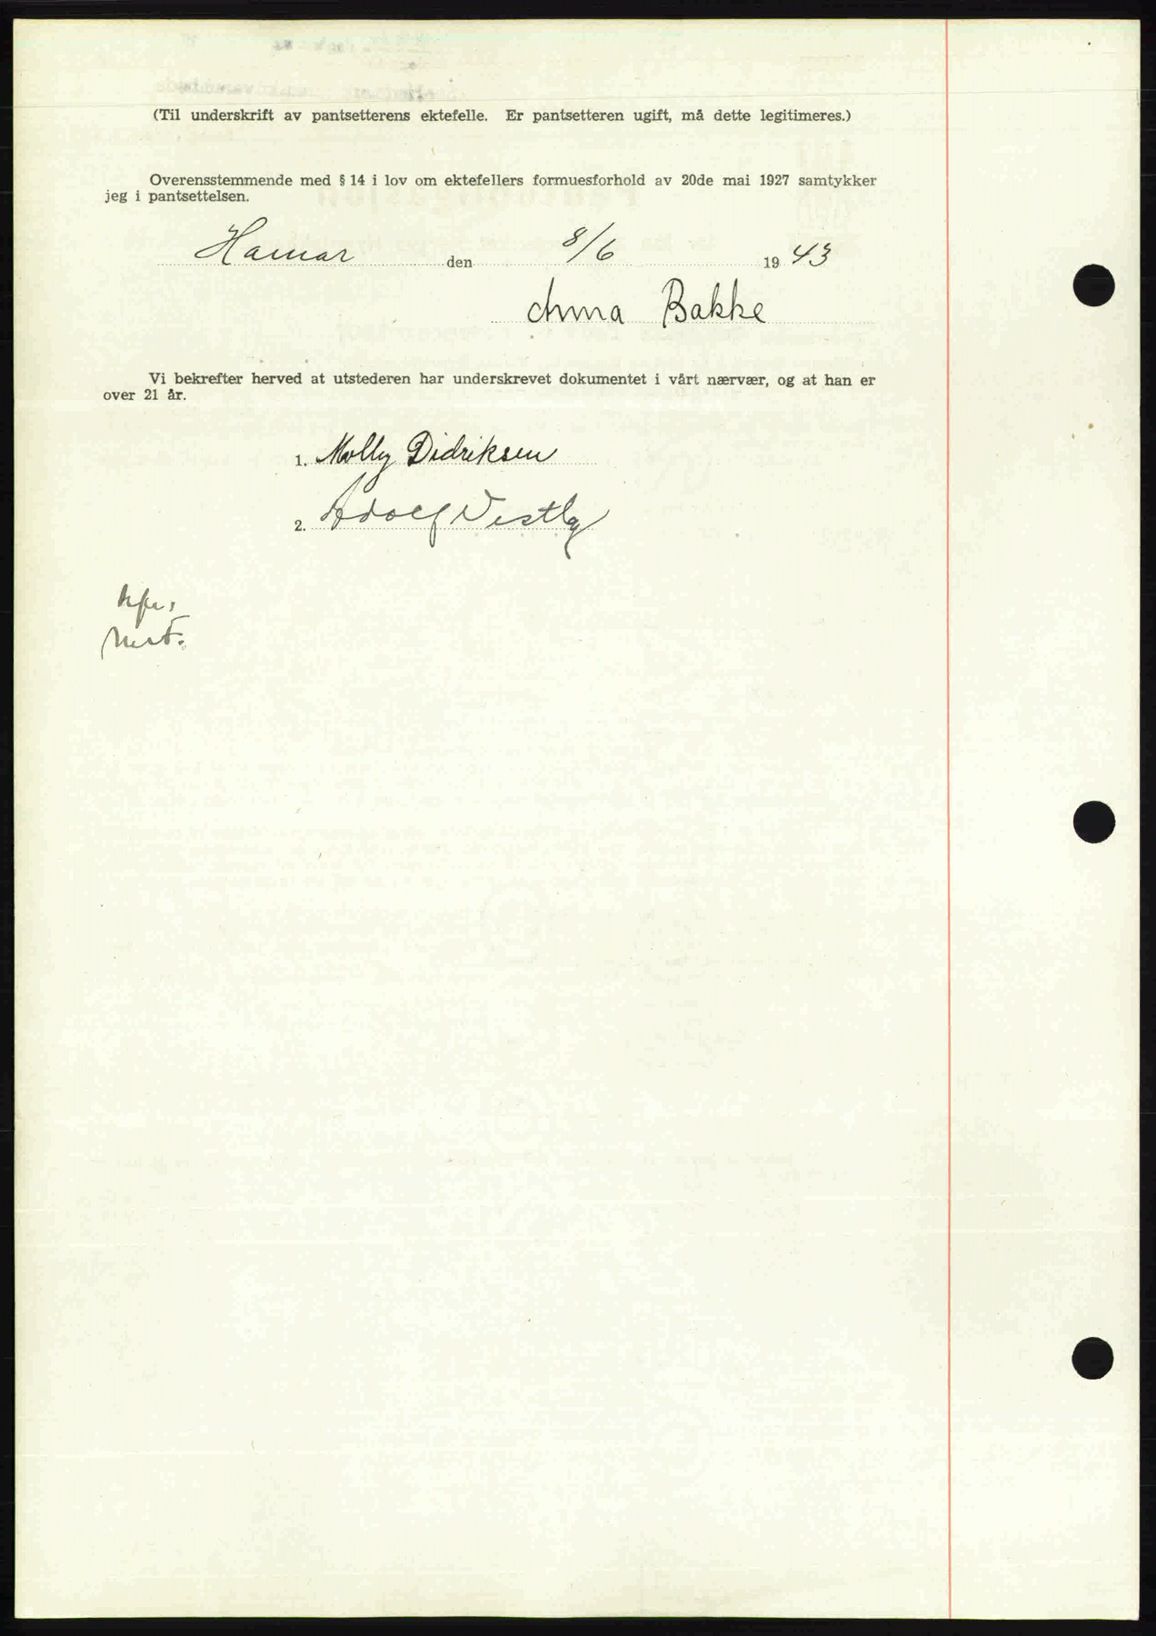 (Til underskrift av pantsetterens ektefelle. Er pantsetteren ugift, må dette legitimeres.)
Overensstemmende med § 14 i lov om ektefellers formuesforhold av 20de mai 1927 samtykker
jeg i pantsettelsen.
Hamar den 8/6 19 43
Anna Bakke
Vi bekrefter herved at utstederen har underskrevet dokumentet i vårt nærvær, og at han er
over 21 år.
1. Molly Didriksen
2. Adolf Vestby